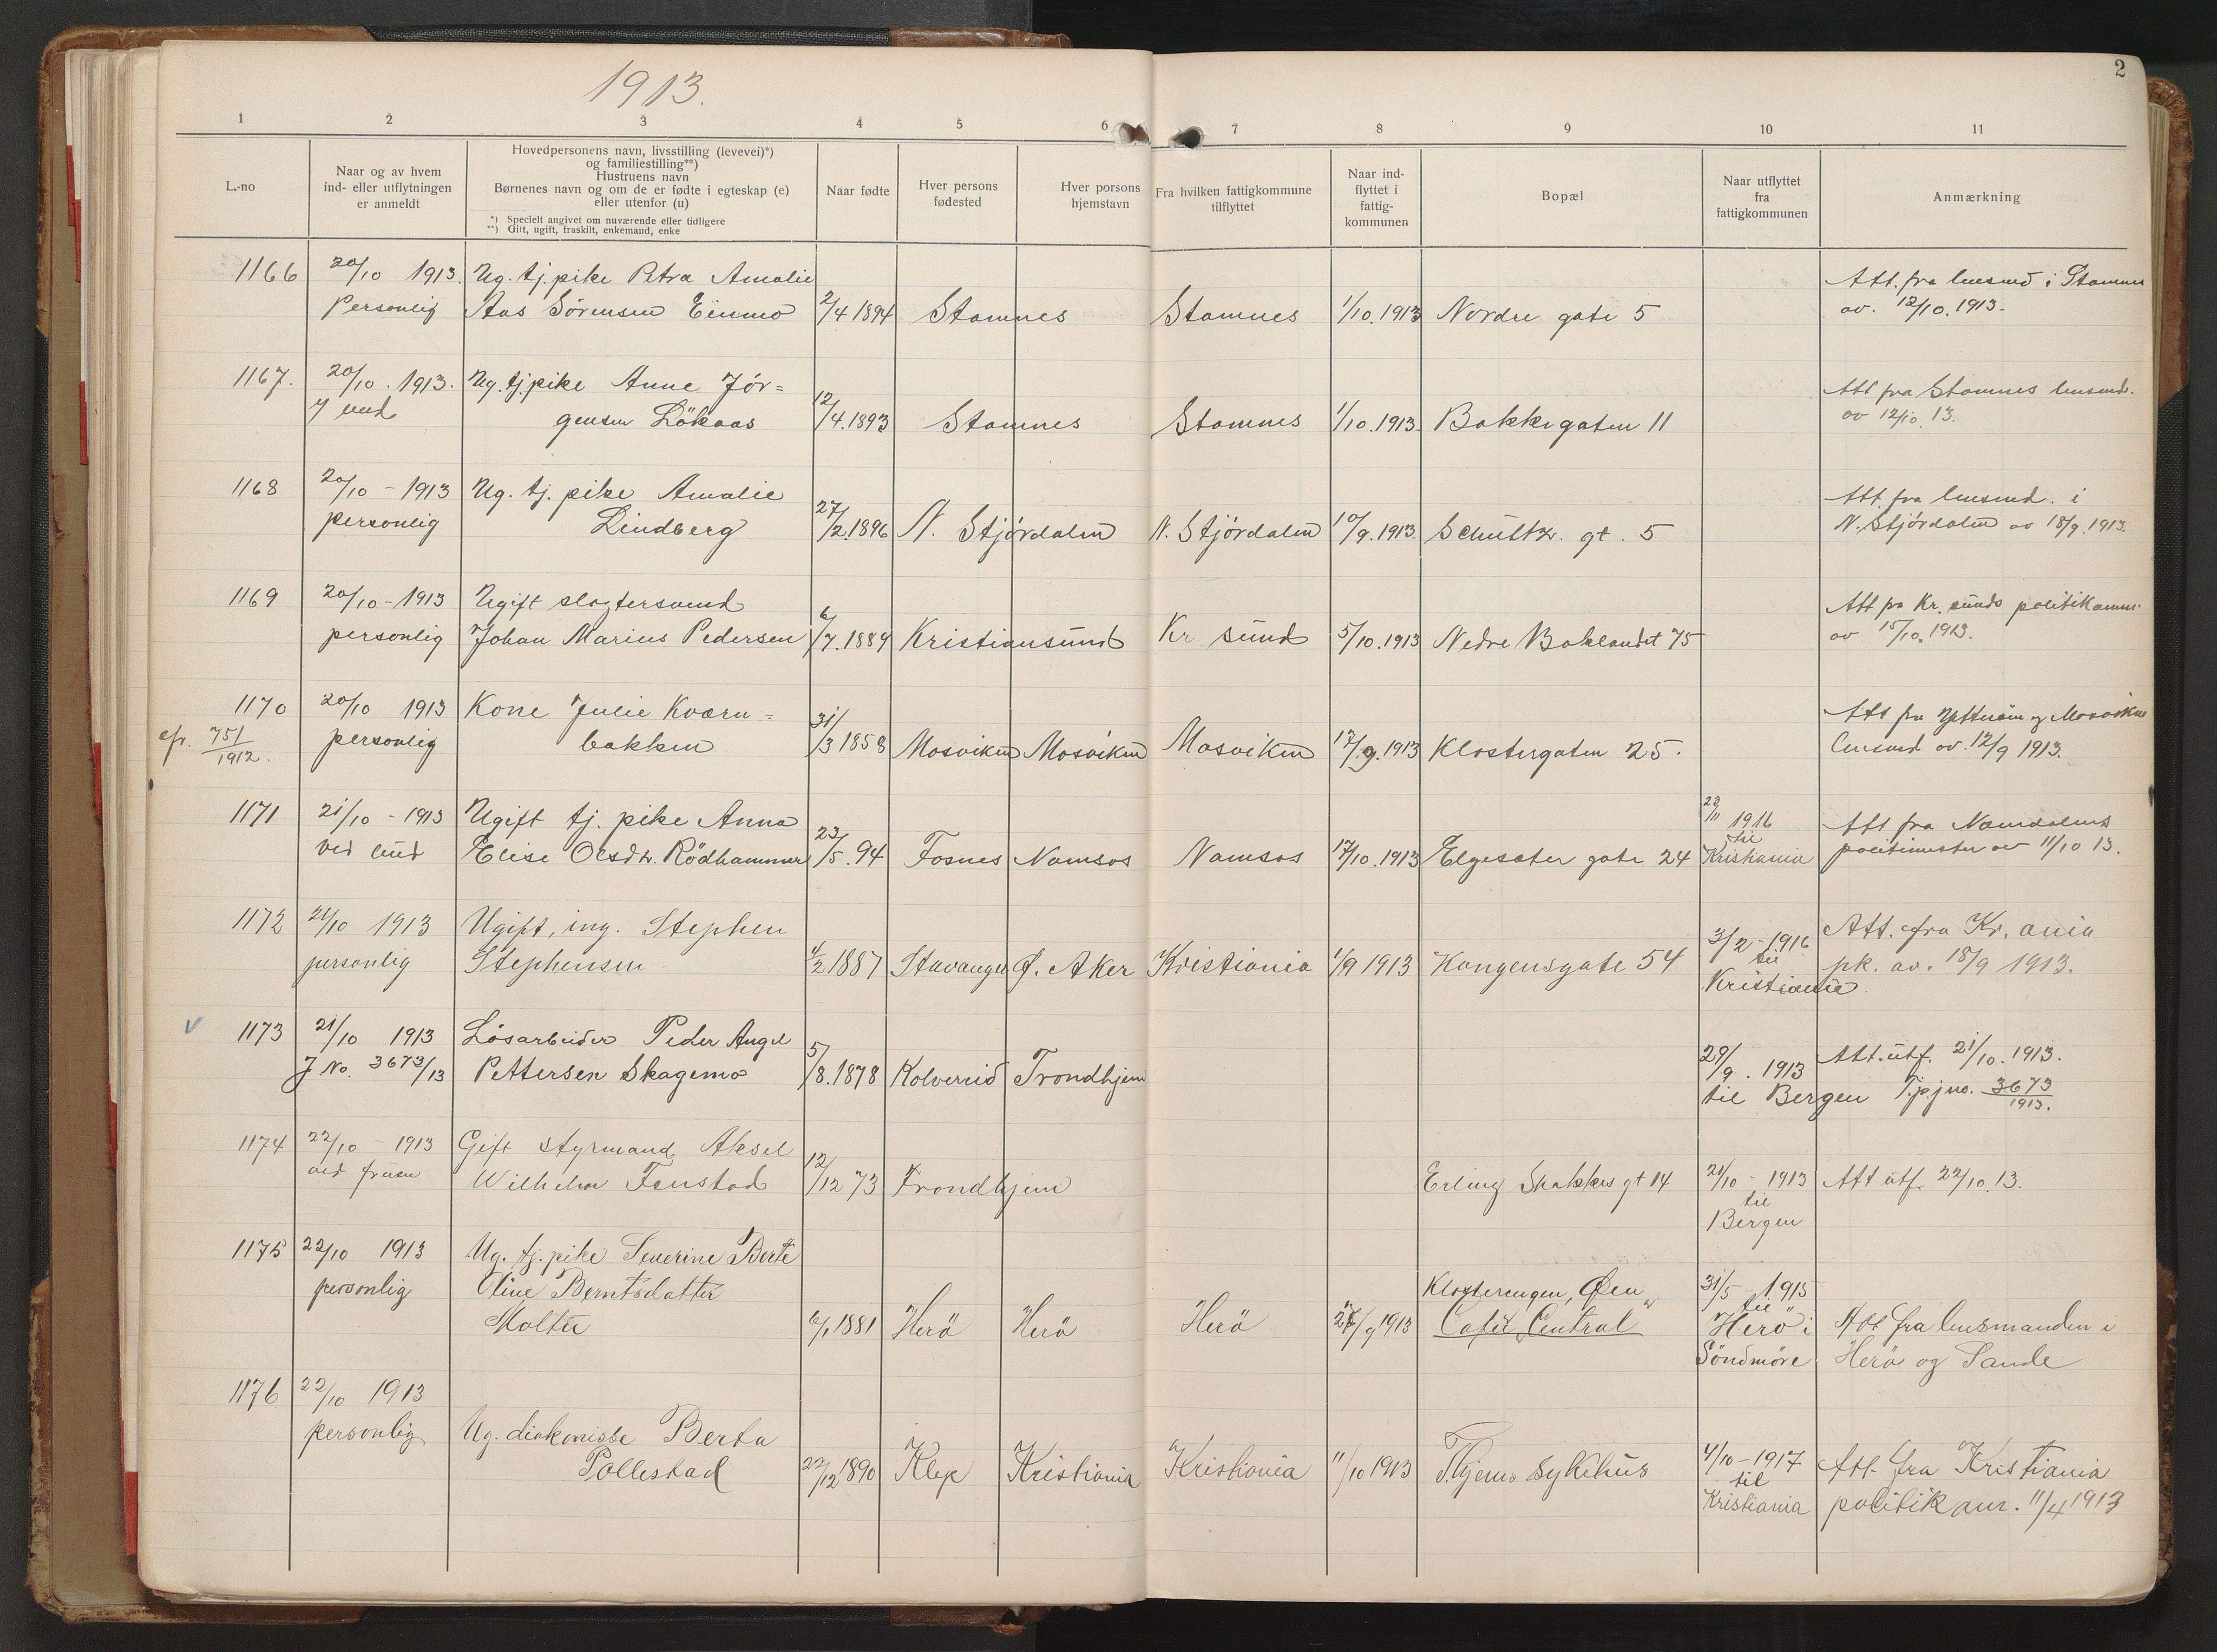 1913.
2
1 2 3 4 5 6 7 8 9 10 11
L.-no
Naar og av hvem
ind- eller utflytningen
er anmeldt
Hovedpersonens navn, livsstilling (levevei)*)
og familiestilling**)
Hustruens navn
Børnenes navn og om de er fødte i egteskap (e)
eller utenfor (u)
*) Specielt angivet om nuværende eller tidligere
**) Gift, ugift, fraskilt, enkemand, enke
Naar fødte
Hver persons
fødested
Hver porsons
hjemstavn
Fra hvilken fattigkommune
tilflyttet
Naar ind-
flyttet i
fattig-
kommunen
Bopæl
Naar utflyttet
fra
fattigkommunen
Anmærkning
1166 20/10 1913. Ug. tj. pike Petra Amalie Att. fra lensmd i Stamnes
personlig Aas Sörensen Einmo 2/4 1894 Stamnes Stamnes 1/10.1913 Nordre gate 5 av. 12/10.1913.
1167. 20/10. 1913. Ug. tj. pike Anne Jör= Att fra Stamnes lensmd.
gensen Lökaas 12/4.1893 Stamnes Stamnes 1/10.1913. Bakkegaten 11 av 12/10.13.
1168 20/10 - 1913 Ug. tj. pike Amalie Att. fra lensmd. i
personlig Lindberg 27/2.1896 N. Stjördalen N. Stjördalen 10/9.1913. Schultz. gt. 5 N. Stjördalen av 18/9.1913.
1169 20/10 - 1913 Ugift slagtersvend Att fra Kr. sunds politikamm.
personlig Johan Marius Pedersen 6/7.1889 Kristiansund Kr sund 5/10.1913 Nedre Baklandet 75 av 15/10.1913.
1170 20/10 1913 Kone Julie Kværn= Att fra Ytterøen og Mosvikens
cfr. 751/1912. personlig bakken 31/3 1858 Mosviken Mosviken Mosviken 17/9.1913 Klostergaten 25. lensmd av. 12/9 1913.
1171 21/10 - 1913 Ugift tj. pike Anna 1916 Att fra Namdalens
ved bud Elise Olsdtr. Rödhammer 23/5.94 Fosnes Namsos Namsos 17/10.1913 Elgesæter gate 24 til Kristiania politimester av 11/10 13.
1172 21/10 1913 Ugift, ing. Stephen 3/2 - 1916 Att. fra Kr.ania
personlig Stephensen 1887 Stavanger Ø. Aker Kristiania 1/9 1913 Kongensgate 54 til Kristiania. pk. av. 18/9 1913.
V 1173 21/10 1913 Lösarbeider Peder Angel 29/9. 1913 Att. utf. 21/10.1913.
J No. 3673/13 Pettersen Skagemo 5/8.1878 Kolvereid Trondhjem til Bergen T.p.jno. 3673/1913.
1174 22/10 - 1913 Gift styrmand Aksel
ved fruen Wilhelm Fenstad 12/12 73 Trondhjem Erling Skakkes gt 14 21/10 - 1913 til Bergen Att utf. 22/10.13.
1175 22/10 1913 Ug. tj. pike Severine Berte
personlig Oline Berntsdatter Klosterengen, Øen 31/5 - 1915
Moltu 1881 Herö Herö Herö 1913 Café "Central" til Herö i Söndmöre Att fra lensmanden i Herö og Sande
1176 22/10 1913
personlig Ug. diakonisse Berta
Pollestad 22/12 1890 Klep Kristiania Kristiania 11/10 1913 T.hjems sykehus 4/10 - 1917 til Kristiania Att. fra Kristiania politikam. 11/4 1913